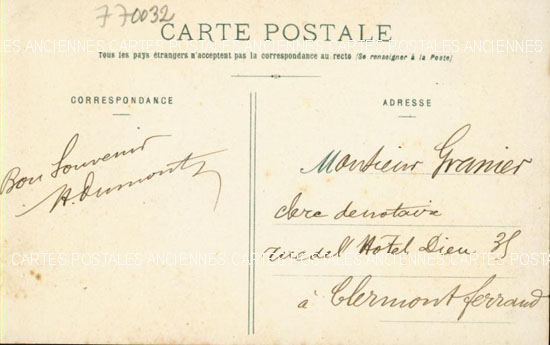 770032
CARTE POSTALE
CARTES POSTALES ANCIENNES CARTES POSTALES ANCIENNES
Tous les pays étrangers n'acceptent pas la correspondance au recto (Se renseigner à la Poste)
CORRESPONDANCE
Bon Souvenir
H. Dumont
ADRESSE
Monsieur Granier
clerc de notaire
rue de l'Hôtel Dieu 35
à Clermont ferrand
CARTES POSTALES ANCIENNES CARTES POSTALES ANCIENNES